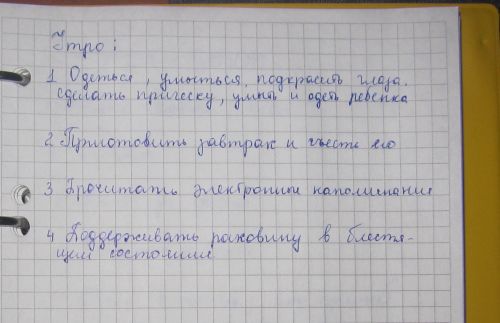 Утро:
1 Одеться, умыться, подкрасить глаза.
сделать прическу, умыть и одеть ребенка
2 Приготовить завтрак и съесть его
3 Прочитать электронные напоминания
4 Поддерживать раковину в блестя-
щем состоянии